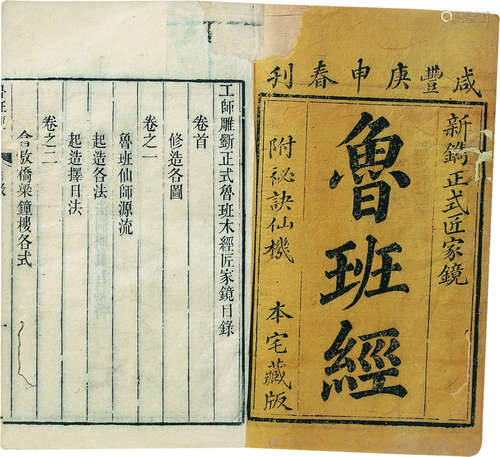 咸豐庚申春刊
新鐫正式匠家鏡
魯班經
附祕訣仙機
本宅藏版
工師雕斵正式魯班木經匠家鏡目錄
卷首
修造各圖
卷之一
魯班仙師源流
起造各法
起造擇日法
卷之二
倉敖橋梁鐘樓各式